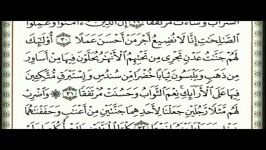 الشَّرَابُ وَسَاءَتْ مُرْتَفَقًا ۝٢٩ إِنَّ الَّذِينَ ءَامَنُوا وَعَمِلُوا
الصَّالِحَاتِ إِنَّا لَا نُضِيعُ أَجْرَ مَنْ أَحْسَنَ عَمَلًا ۝٣٠ أُولَٰئِكَ
لَهُمْ جَنَّاتُ عَدْنٍ تَجْرِي مِن تَحْتِهِمُ الْأَنْهَارُ يُحَلَّوْنَ فِيهَا مِنْ أَسَاوِرَ
مِن ذَهَبٍ وَيَلْبَسُونَ ثِيَابًا خُضْرًا مِّن سُندُسٍ وَإِسْتَبْرَقٍ مُّتَّكِئِينَ
فِيهَا عَلَى الْأَرَائِكِ نِعْمَ الثَّوَابُ وَحَسُنَتْ مُرْتَفَقًا ۝٣١ وَاضْرِبْ
لَهُم مَّثَلًا رَّجُلَيْنِ جَعَلْنَا لِأَحَدِهِمَا جَنَّتَيْنِ مِنْ أَعْنَابٍ وَحَفَفْنَاهُمَا